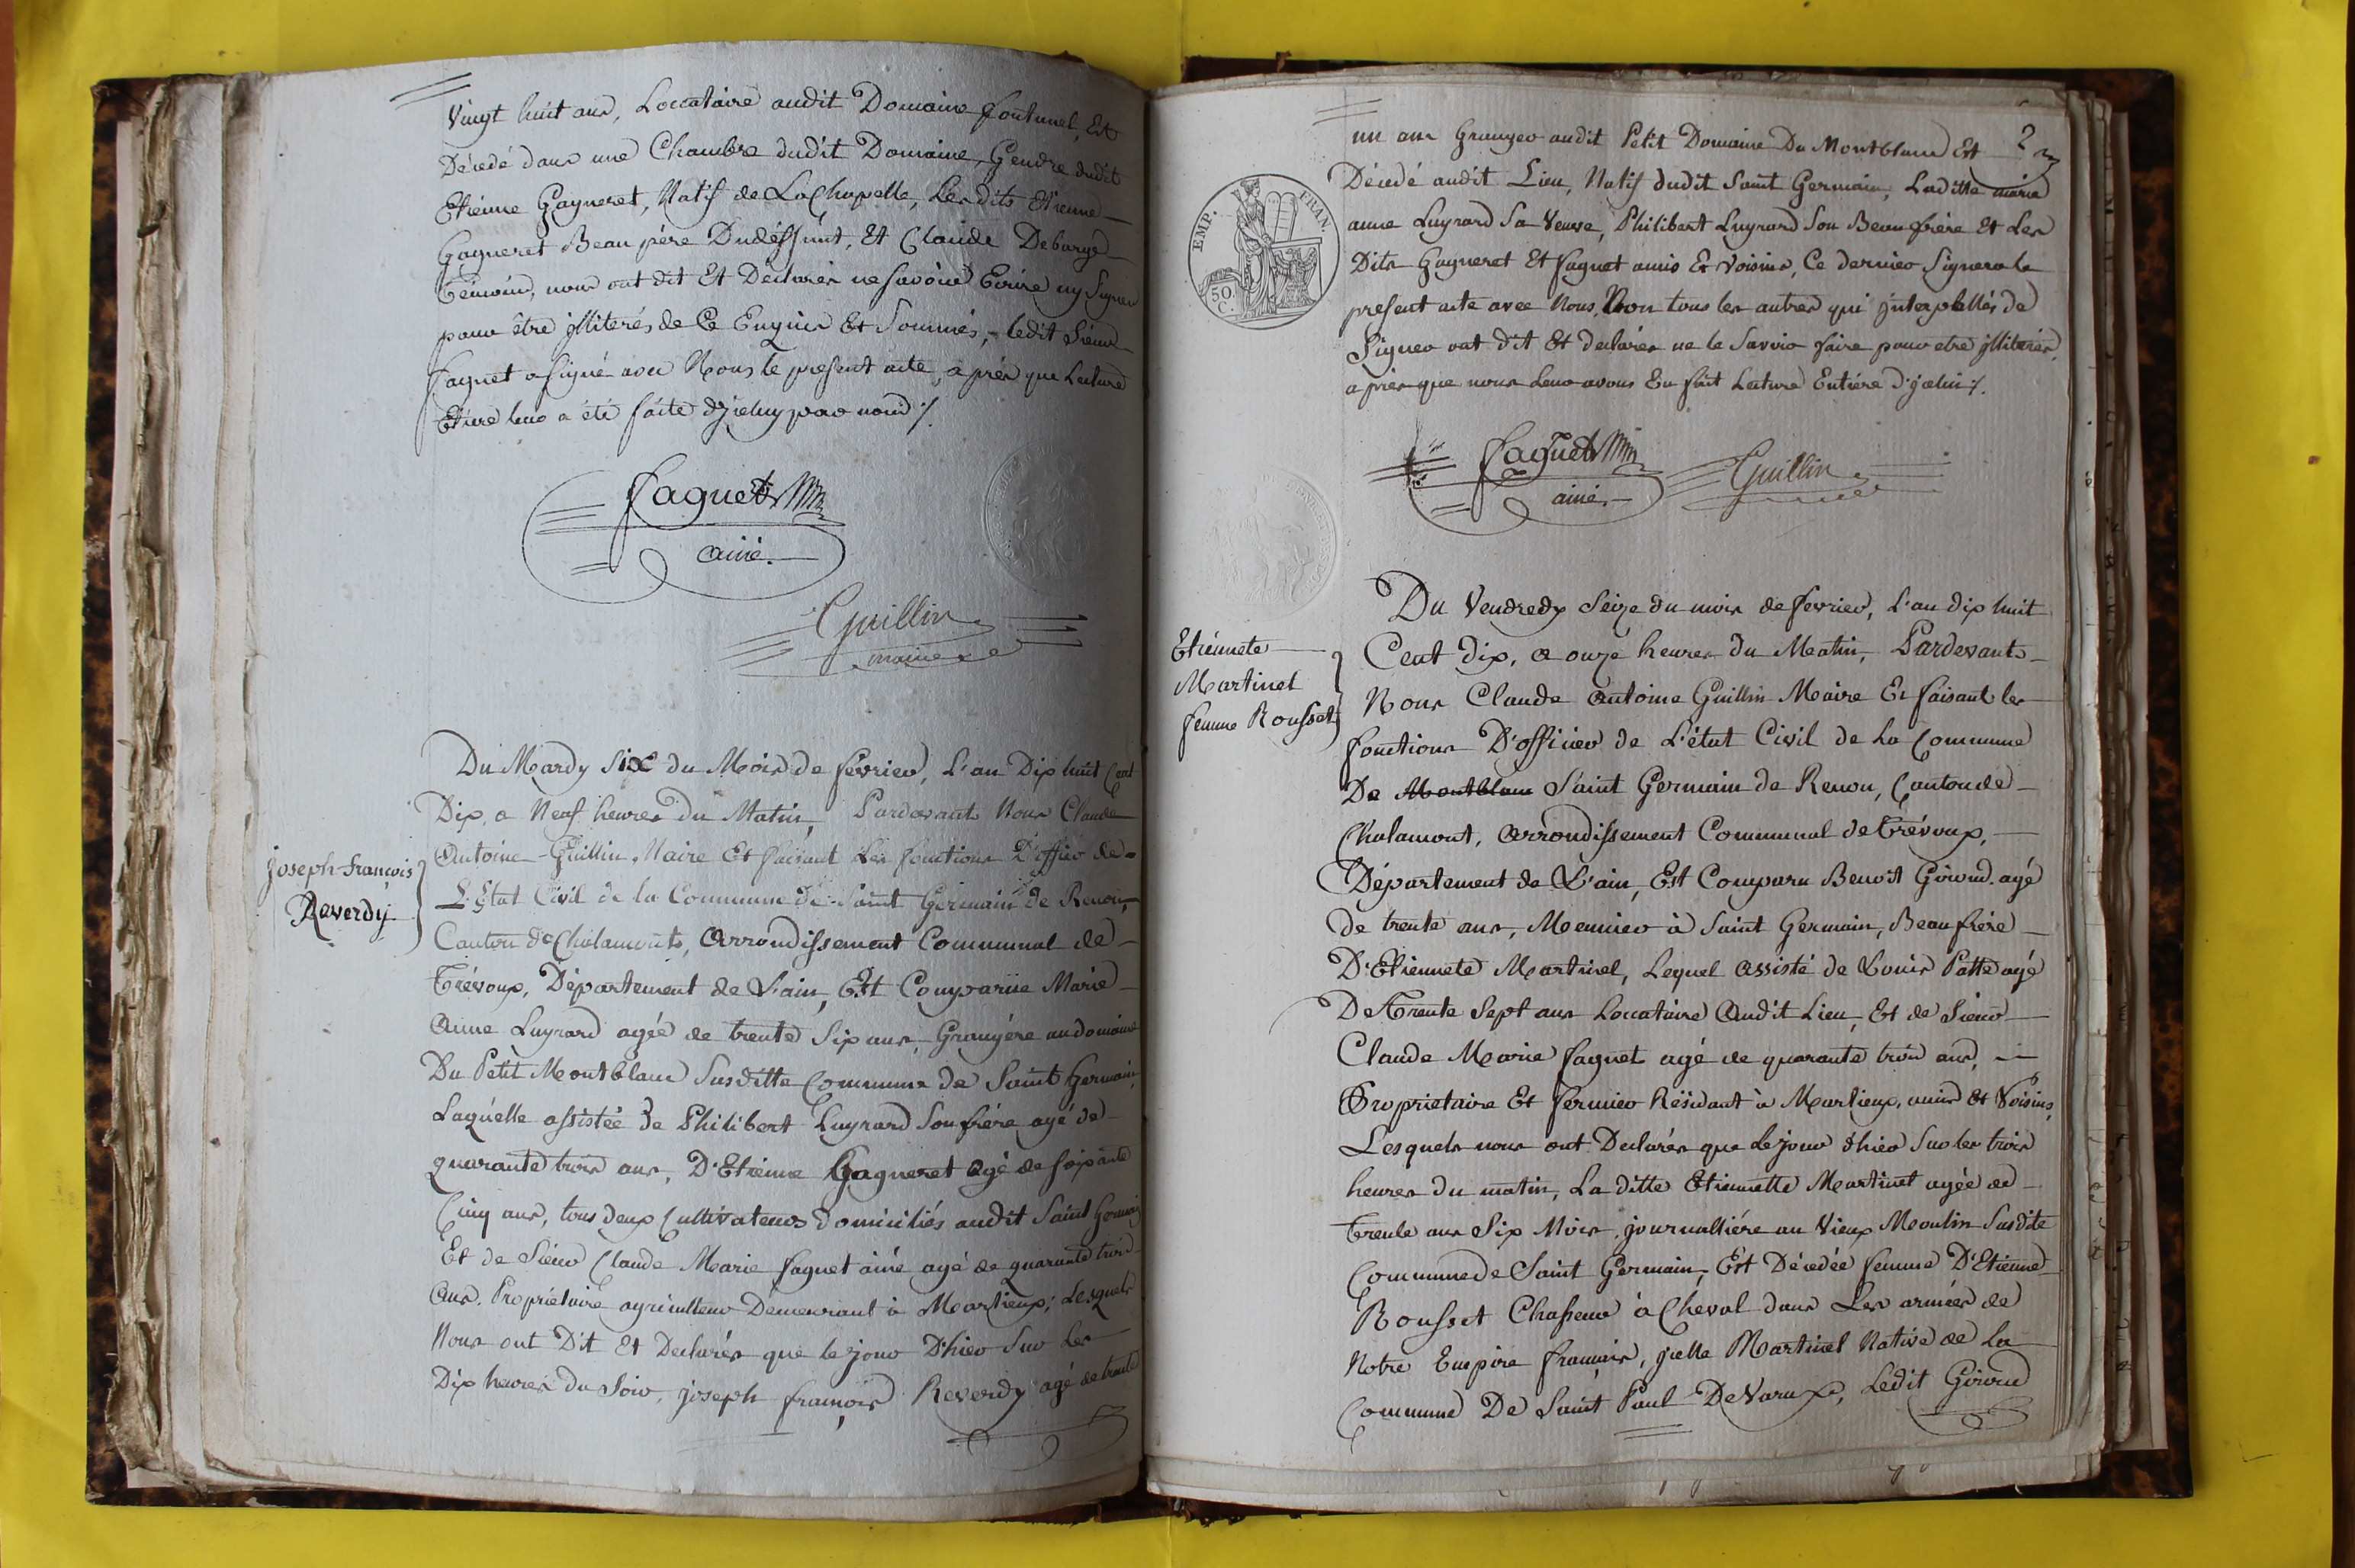 Vingt huit ans, Locataire audit Domaine fontunel, Est
Décedé dans une Chambre dudit Domaine, Gendre dudit
Etiénne Gagneret, Natif de LaChapelle, Lesdits Etienne
Gagneret Beau pére Dudéffunt, Et Claude Debarge
Témoins, nous ont dit Et Declarés ne savoir Ecrire ny Signer
pour être jlliterés de Ce Enquis Et Sommés, ledit Sieur
faguet a signé avec Nous le present acte, après que Lecture
leur a été faite d'jceluy par nous ./.
faguet
ainé.
Guillin
maire
Joseph-François
Reverdy
Du Mardy Six du Mois de février, L'an Dix huit Cent
Dix, a Neuf heures du Matin, Pardevant Nous Claude
Antoine Guillin Maire Et faisant Les fonctions D'officer de
L'Etat Civil de la Commune de Saint Germain de Renon,
Canton de Chalamont, Arrondissement Communal de
Trévoux, Département de L'ain, Est Comparüe Marie
Anne Luyrard agée de trente Six ans, Grangére audomaine
Du Petit Montblanc Susditte Commune de Saint Germain,
Laquelle assistée de Philibert Luyrard Son frére agé de
quarante trois ans, D'Etienne Gagneret agé de soixante
Cinq ans, tous deux Cultivateurs domiciliés audit Saint Germain
Et de Siéur Claude Marie faguet ainé agé de quarante trois
Ans, Proprietaire agriculteur Demeurant à Marlieux; Lesquels
Nous ont Dit Et Declarés que le jour D'hier Sur Les
Dix heures du Soir, joseph françois Reverdy agé de trente
un ans Granger audit Petit Domaine Du Montblanc Est
Décedé audit Lieu, Natif dudit Saint Germain, Laditte marie
anne Luyrard Sa Veuve, Philibert Luyrard Son Beau frére Et Les
Dits Gagneret Et faguet amis Et Voisins, Ce dernier Signera le
present acte avec Nous, Non tous les autres qui jnterpellés de
Signer ont dit Et declarés ne le Savoir faire pour etre jlliterés,
après que nous Leur avons En fait Lecture Entiére d'jcelui ./.
EMP. FRAN.
50
C.
faguet
ainé
Guillin
Etiénnete
Martinet
femme Rousset
Du Vendredy Seize du mois de fevrier, L'an dix huit
Cent Dix, a onze heures du Matin, Pardevant
Nous Claude Antoine Guillin Maire Et faisant les
fonctions D'officier de L'état Civil de La Commune
De Montblanc Saint Germain de Renon, Canton de
Chalamont, Arrondissement Communal de Trévoux,
Département de L'ain, Est Comparu Benoit Giroud agé
de trente ans, Meunier à Saint Germain, Beaufrére
D'Etiennete Martinet, Lequel Assisté de Louis Patte agé
De Trente Sept ans Locataire Audit Lieu, Et de Sieur
Claude Marie faguet agé de quarante trois ans,
Proprietaire Et fermier Résidant à Marlieux, amis Et Voisins,
Lesquels nous ont Declarés que Le jour d'hier Sur les trois
heures du matin, La ditte Etiennette Martinet agée de
Trente ans Six Mois, journalliére au Vieux Moulin Susdite
Commune de Saint Germain, Est Décedée femme D'Etienne
Rousset Chasseur à Cheval dans Les armées de
Notre Empire français, jcelle Martinet Native de La
Commune De Saint Paul DeVarax, Ledit Giroud